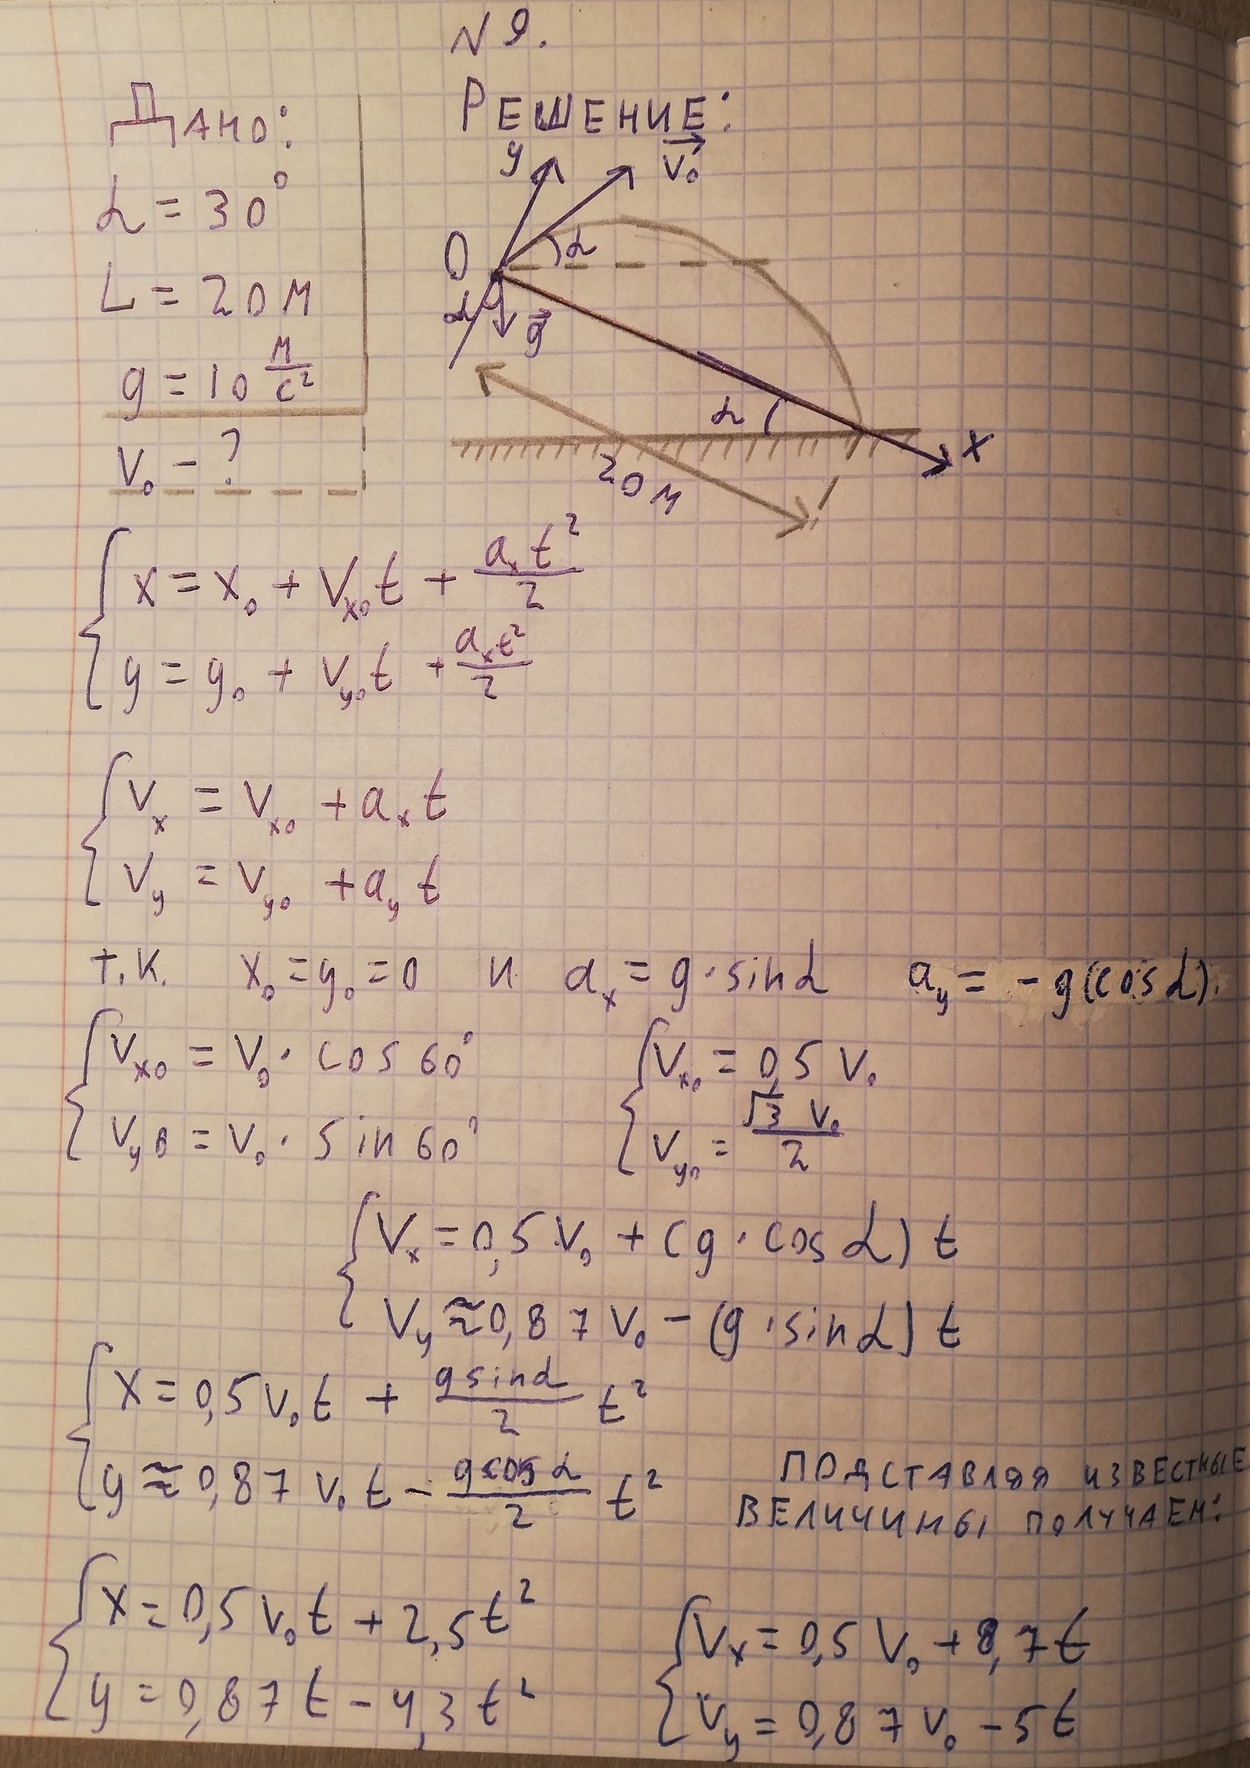 N 9.
Дано:
α = 30°
L = 20 м
g = 10 м/с²
V₀ – ?
Решение:
y
V₀
0
α
α
g
α
x
20 м
x = x₀ + Vₓ₀t + aₓt²/2
y = y₀ + Vy₀t + aₓt²/2
Vₓ = Vₓ₀ + aₓt
Vy = Vy₀ + ayt
т.к. x₀ = y₀ = 0 и aₓ = g · sinα ay = – g(cosα).
Vₓ₀ = V₀ · cos 60° Vₓ₀ = 0,5 V₀
Vy₀ = V₀ · sin 60° Vy₀ = √3 V₀/2
Vₓ = 0,5 V₀ + (g · cosα) t
Vy ≈ 0,87 V₀ – (g · sinα) t
x = 0,5 V₀t + gsinα/2 t²
y ≈ 0,87 V₀t – gcosα/2 t²
подставляя известные
величины получаем:
x = 0,5 V₀t + 2,5t²
y = 0,87t – 4,3t²
Vₓ = 0,5 V₀ + 8,7t
Vy = 0,87 V₀ – 5t